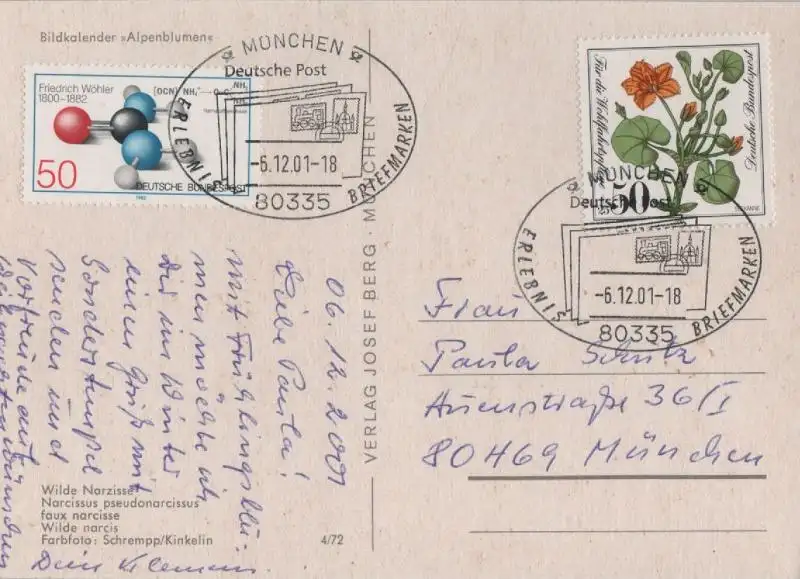 Bildkalender »Alpenblumen«
Friedrich Wöhler
1800–1882
[OCN]⁻ NH₄⁺
NH₂
NH₂
50
DEUTSCHE BUNDESPOST
1982
MÜNCHEN
Deutsche Post
ERLEBNIS
BRIEFMARKEN
-6.12.01-18
80335
Für die Wohlfahrtspflege
Deutsche Bundespost
50
SEEKANNE
MÜNCHEN
Deutsche Post
ERLEBNIS
BRIEFMARKEN
-6.12.01-18
80335
VERLAG JOSEF BERG · MÜNCHEN
06.12.2001
Liebe Paula!
mit Frühlingsblu-
men möchte ich
dir im Winter
einen Gruß mit
Sonderstempel
senden und
Vorfreude auf
Dein Klemens.
Frau
Paula
36/I
80469 München
Wilde Narzisse
Narcissus pseudonarcissus
faux narcisse
Wilde narcis
Farbfoto: Schrempp/Kinkelin
4/72